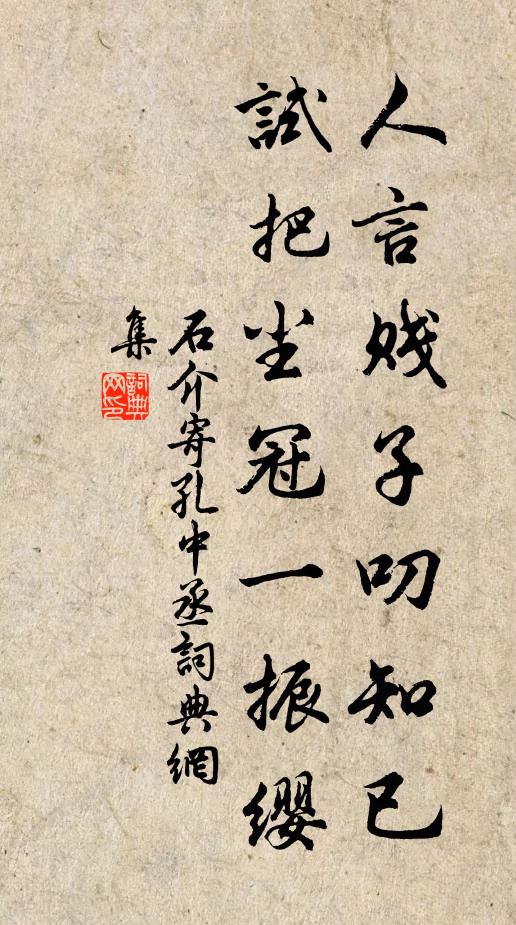 人言贱子叨知已
試把尘冠一振缨
石介寄孔中丞詞典網
集
詞典
网印